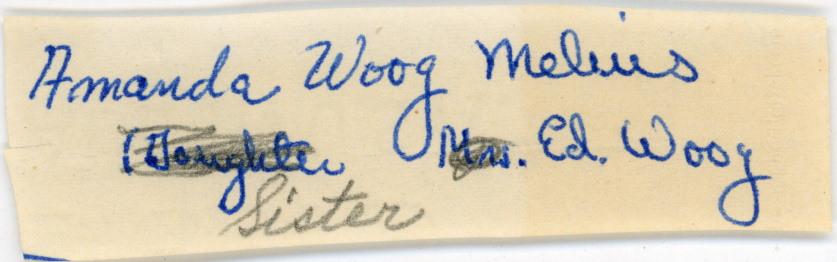 Amanda Woog Melius
(Daughter Mrs. Ed. Woog
Sister